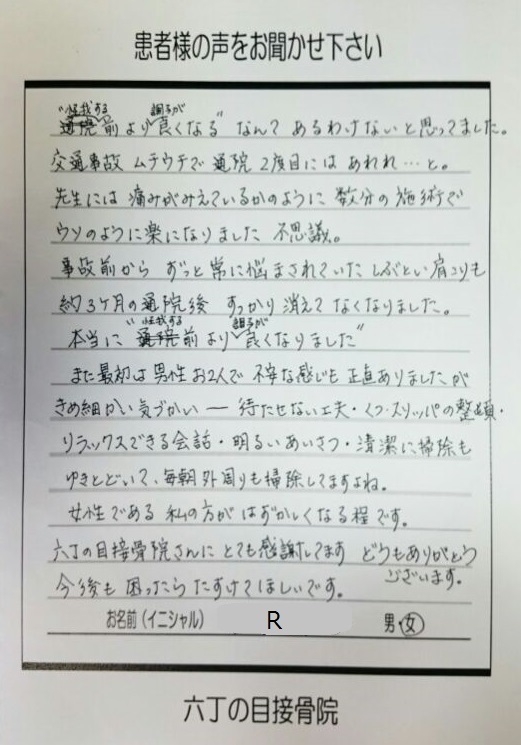 患者様の声をお聞かせ下さい
怪我する 調子が
"通院前より良くなる"なんて あるわけないと思ってました。
交通事故 ムチウチで 通院 2度目には あれれ…と。
先生には 痛みがみえているかのように 数分の施術で
ウソのように楽になりました 不思議。
事故前から ずっと常に悩まされていた しぶとい肩コリも
約3ヶ月の通院後 すっかり消えてなくなりました。
怪我する 調子が
本当に"通院前より良くなりました"
また最初は男性お2人で 不安な感じも正直ありましたが
きめ細かい気づかい ー 待たせない工夫・くつ・スリッパの整頓・
リラックスできる会話・明るいあいさつ・清潔に掃除も
ゆきとどいて、毎朝外周りも掃除してますよね。
女性である 私の方が はずかしくなる程です。
六丁の目接骨院さんに とても感謝してます どうもありがとう
ございます。
今後も 困ったら たすけてほしいです。
お名前(イニシャル) R 男・女
六丁の目接骨院